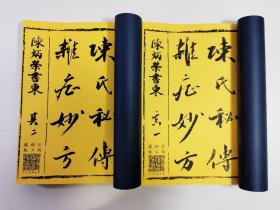 陳氏秘傳
雜症妙方
陳炳榮書東 其一
陳氏秘傳
雜症妙方
陳炳榮書東 其二